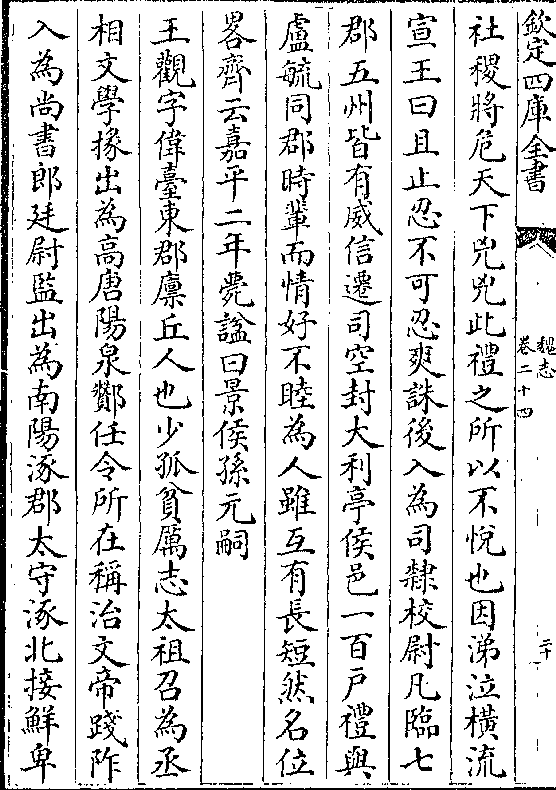 欽定四庫全書
魏志
卷二十四
二十
社稷將危天下兇兇此禮之所以不悅也因涕泣橫流
宣王曰且止忍不可忍爽誅後入為司隸校尉凡臨七
郡五州皆有威信遷司空封大利亭侯邑一百戶禮與
盧毓同郡時輩而情好不睦為人雖互有長短然名位
畧齊云嘉平二年薨諡曰景侯孫元嗣
王觀字偉臺東郡廩丘人也少孤貧厲志太祖召為丞
相文學掾出為高唐陽泉酇任令所在稱治文帝踐阼
入為尚書郎廷尉監出為南陽涿郡太守涿北接鮮卑